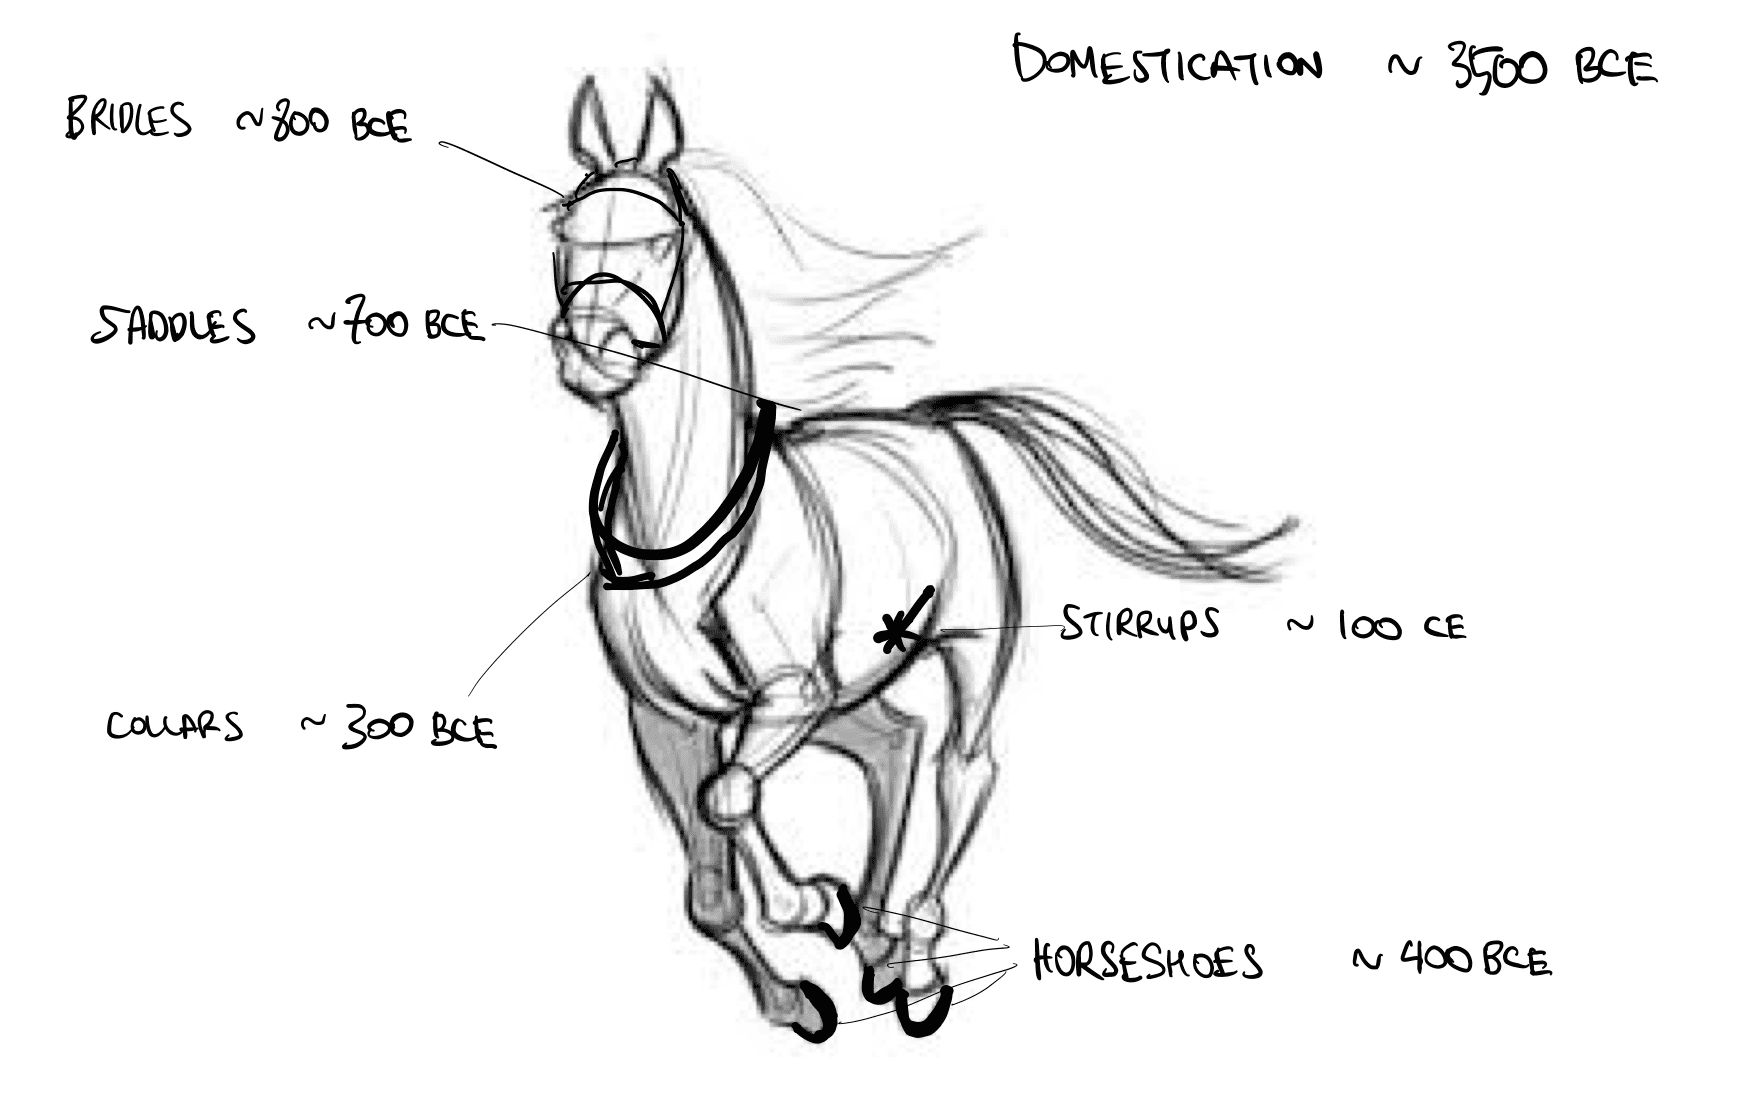 DOMESTICATION ~ 3500 BCE
BRIDLES ~800 BCE
SADDLES ~700 BCE
STIRRUPS ~ 100 CE
COLLARS ~ 300 BCE
HORSESHOES ~ 400 BCE